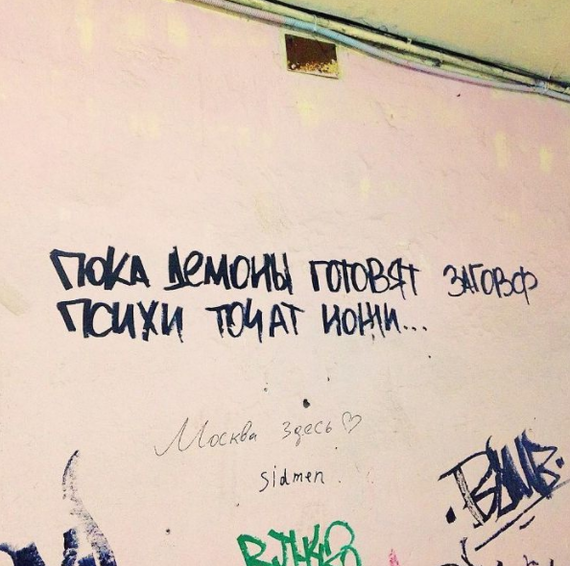 ПОКА ДЕМОНЫ ГОТОВЯТ ЗАГОВОР
ПСИХИ ТОЧАТ НОЖИ...
Москва здесь♡
sidmen